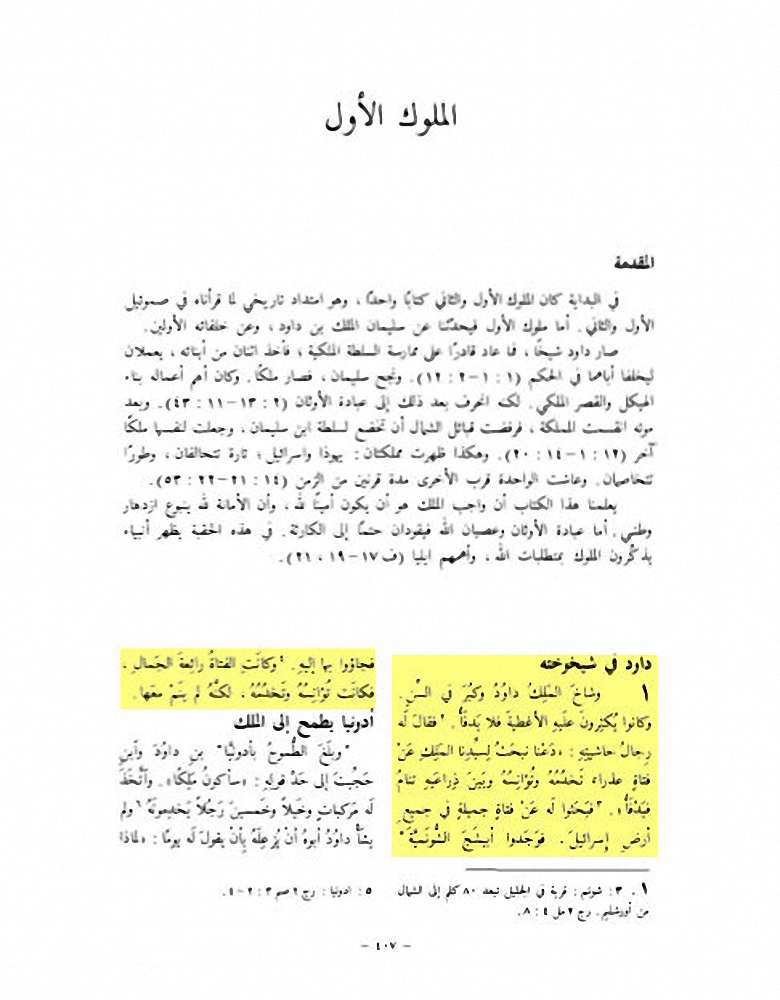 الملوك الأول
المقدمة
في البداية كان الملوك الأول والثاني كتابًا واحدًا ، وهو امتداد تاريخي لما قرأناه في صموئيل
الأول والثاني . أما ملوك الأول فيحدثنا عن سليمان الملك بن داود ، وعن خلفائه الأولين .
صار داود شيخًا ، فما عاد قادرًا على ممارسة السلطة الملكية ؛ فأخذ اثنان من أبنائه ، يعملان
ليخلفا أباهما في الحكم (١ : ١-٢ : ١٢). ونجح سليمان ، فصار ملكًا . وكان أهم أعماله بناء
الهيكل والقصر الملكي . لكنه انحرف بعد ذلك إلى عبادة الأوثان (٢ : ١٣-١١ : ٤٣). وبعد
موته انقسمت المملكة ، فرفضت قبائل الشمال أن تخضع لسلطة ابن سليمان ، وجعلت لنفسها ملكًا
آخر (١٢ : ١-١٤ : ٢٠). وهكذا ظهرت مملكتان : يهوذا واسرائيل ؛ تارة تتحالفان ، وطورًا
تتخاصمان . وعاشت الواحدة قرب الأخرى مدة قرنين من الزمن (١٤ : ٢١-٢٢ : ٥٣).
يعلمنا هذا الكتاب أن واجب الملك هو أن يكون أمينًا لله ، وأن الأمانة لله ينبوع ازدهار
وطني . أما عبادة الأوثان وعصيان الله فيقودان حتمًا إلى الكارثة . في هذه الحقبة يظهر أنبياء
يذكّرون الملوك بمتطلبات الله ، وأهمهم ايليا (ف ١٧-١٩ ، ٢١).
داود في شيخوخته
١ وشاخَ المَلِكُ داوُدُ وكَبُرَ في السِّنِ .
وكانوا يُكثِرونَ عَلَيهِ الأغطيةَ فلا يَدفَأُ . ٢ فقالَ لَه
رِجالُ حاشيتِهِ : «دَعْنا نبحَثُ لِسيِّدِنا المَلِكِ عَنْ
فتاةٍ عذراءَ تَخدُمُهُ وتُؤانِسُهُ وبَينَ ذِراعَيهِ تنامُ
فيَدْفَأُ» . ٣ فبَحَثوا لَه عَنْ فتاةٍ جميلةٍ في جميعِ
أرضِ إِسرائيلَ . فوَجَدوا أبيشَجَ الشُّونَميَّةَ
فجاؤوا بها إليهِ . ٤ وكانَتِ الفتاةُ رائِعةَ الجَمالِ .
فكانَت تُؤانِسُهُ وتَخدُمُهُ ، لكنَّهُ لم يَنَمْ معَها .
أدونيا يطمح إلى الملك
٥ وبلَغَ الطُّموحُ بأدونيَّا بنِ داوُدَ واَبنِ
حَجِّيتَ إلى حَدِّ قولِهِ : «سأكونُ مَلِكًا» . وأتَّخَذَ
لَه مَركباتٍ وخَيلاً وخَمسينَ رَجُلاً يَخدِمونَهُ ٦ ولم
يشَأْ داوُدُ أبوهُ أنْ يُزعِلَهُ بِأنْ يقولَ لَه يومًا : «لماذا
١ . ٣ : شونم : قرية في الجليل تبعد ٨٠ كلم إلى الشمال
من أورشليم . رج ٢ مل ٤ : ٨ .
٥ : ادونيا : رج ٢ صم ٣ : ٢-٤ .
- ٤٠٧ -